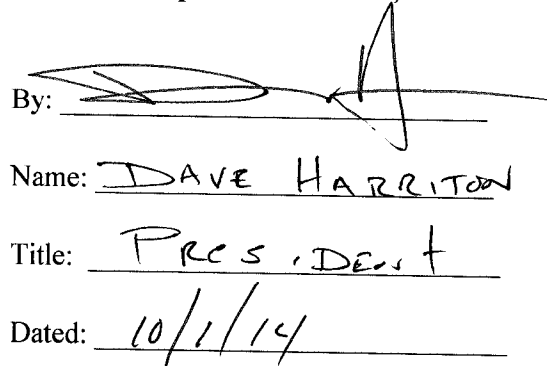 By:
Name: DAVE HARRITON
Title: PRESIDENT
Dated: 10/1/14